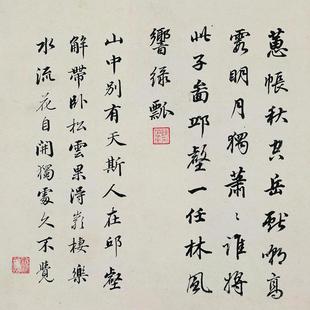 蕙帳秋空岳猷啣高
霞明月獨蕭〻誰將
此子畫邱壑一任林風
響綠瓢
山中別有天斯人在邱壑
解帶臥松雲果得嵗棲樂
水流花自開獨處久不覺